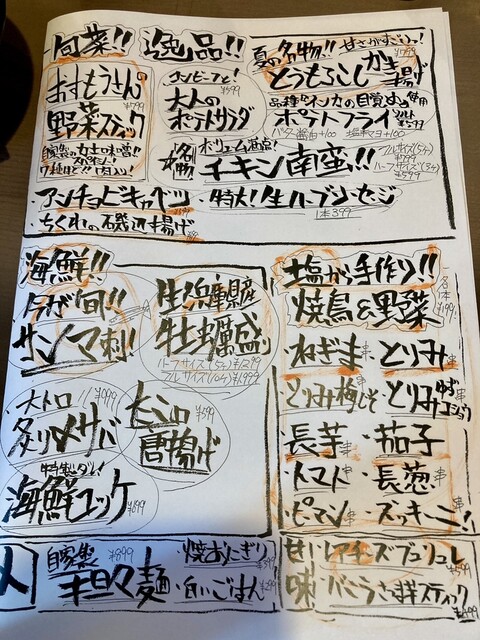 旬菜!! 逸品!!
おすもうさんの
野菜スティック
¥599
コンビーフと!
大人の
ポテトサラダ
¥599
夏の名物!! 甘さがすごいっ!
とうもろこしかき揚げ
¥799
品種「インカの目覚め」使用
ポテトフライ
バター醤油+100 塩辛マヨ+100
名物 ボリューム満点!!
チキン南蛮!!
フルサイズ(5ヶ)
¥999
ハーフサイズ
¥599
・アンチョビキャベツ
・ちくわの磯辺揚げ
・特大!生ハーブソーセージ
1本399
海鮮!!
今が旬!!
サンマ刺!
生浜 兵庫県産
牡蠣盛り
ハーフサイズ(5ヶ) ¥1299
フルサイズ(10ヶ) ¥1999
・大トロ
炙りメサバ
タコ
唐揚げ
¥599
特製ダレ!
海鮮ユッケ
¥899
塩から手作り!!
焼鳥&野菜
各1本 ¥199
・ねぎま串・とりみ串
・とりみ梅しそ・とりみゆずコショウ
・長芋串・茄子串
・トマト串・長葱串
・ピマン串・ズッキーニ!串
〆
自家製 ¥899
坦々麺
・焼おにぎり
・白いごはん
甘い レアチーズブリュレ
味